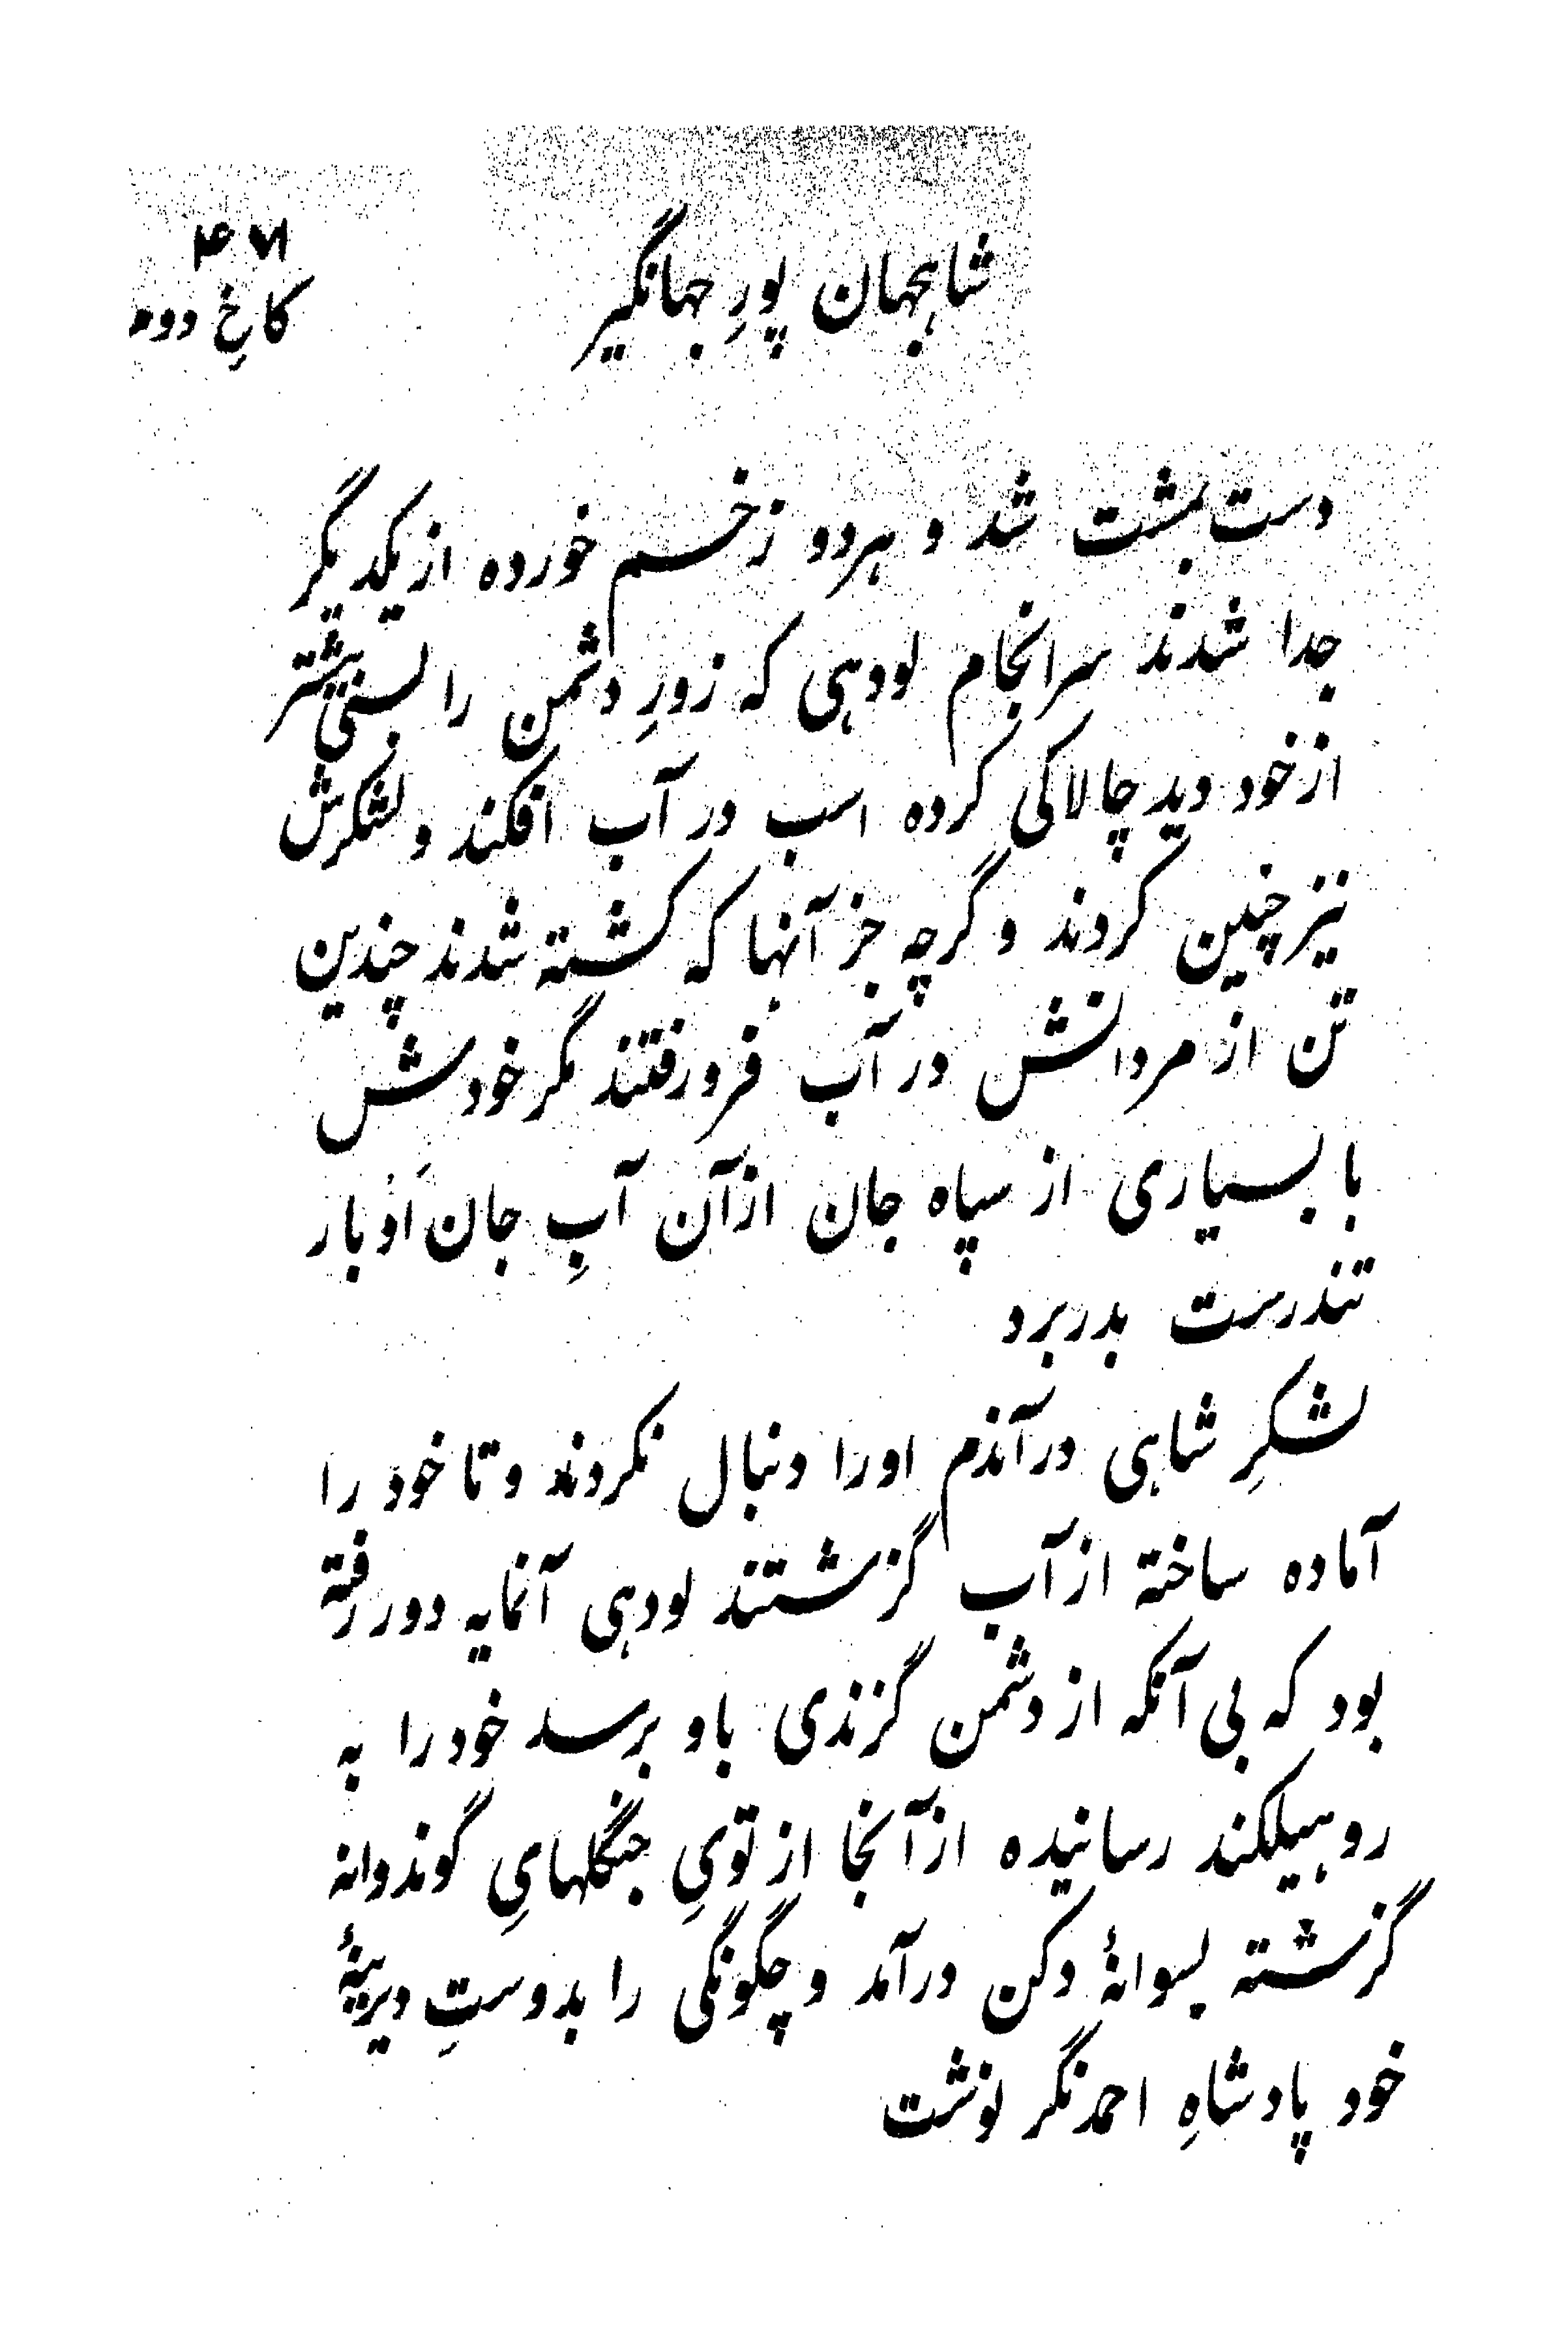 ۴۷۱
شاهجهان پورِ جهانگیر
کاخِ دوم
دست بمشت شد و هردو زخم خورده از یکدیگر
جدا شدند سرانجام لودهی که زورِ دشمن را بسی بیشتر
از خود دید چالاکی کرده اسب در آب افکند و لشکرش
نیز چنین کردند و گرچه جز آنها که کشته شدند چندین
تن از مردانش در آب فرو رفتند مگر خودش
با بسیاری از سپاه جان از آن آبِ جان اَوْبار
تندرست بدر برد
لشکرِ شاهی در آندم او را دنبال نکردند و تا خود را
آماده ساخته از آب گزشتند لودهی آنمایه دور رفته
بود که بی آنکه از دشمن گزندی باو برسد خود را به
روهیلکند رسانیده از آنجا از تویِ جنگلهایِ گوندوانه
گزشته بسوانهٔ دکن درآمد و چگونگی را بدوستِ دیرینهٔ
خود پادشاهِ احمدنگر نوشت